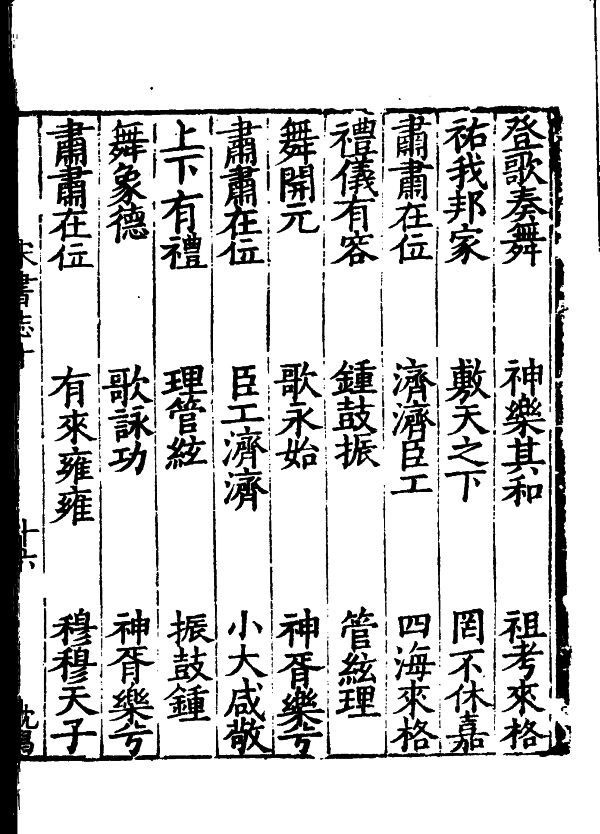 登歌奏舞　神樂其和　祖考來格
祐我邦家　敷天之下　罔不休嘉
肅肅在位　濟濟臣工　四海來格
禮儀有容　鍾鼓振　管絃理
舞開元　歌永始　神胥樂兮
肅肅在位　臣工濟濟　小大咸敬
上下有禮　理管絃　振鼓鍾
舞象德　歌詠功　神胥樂兮
肅肅在位　有來雍雍　穆穆天子
宋書志十　十六